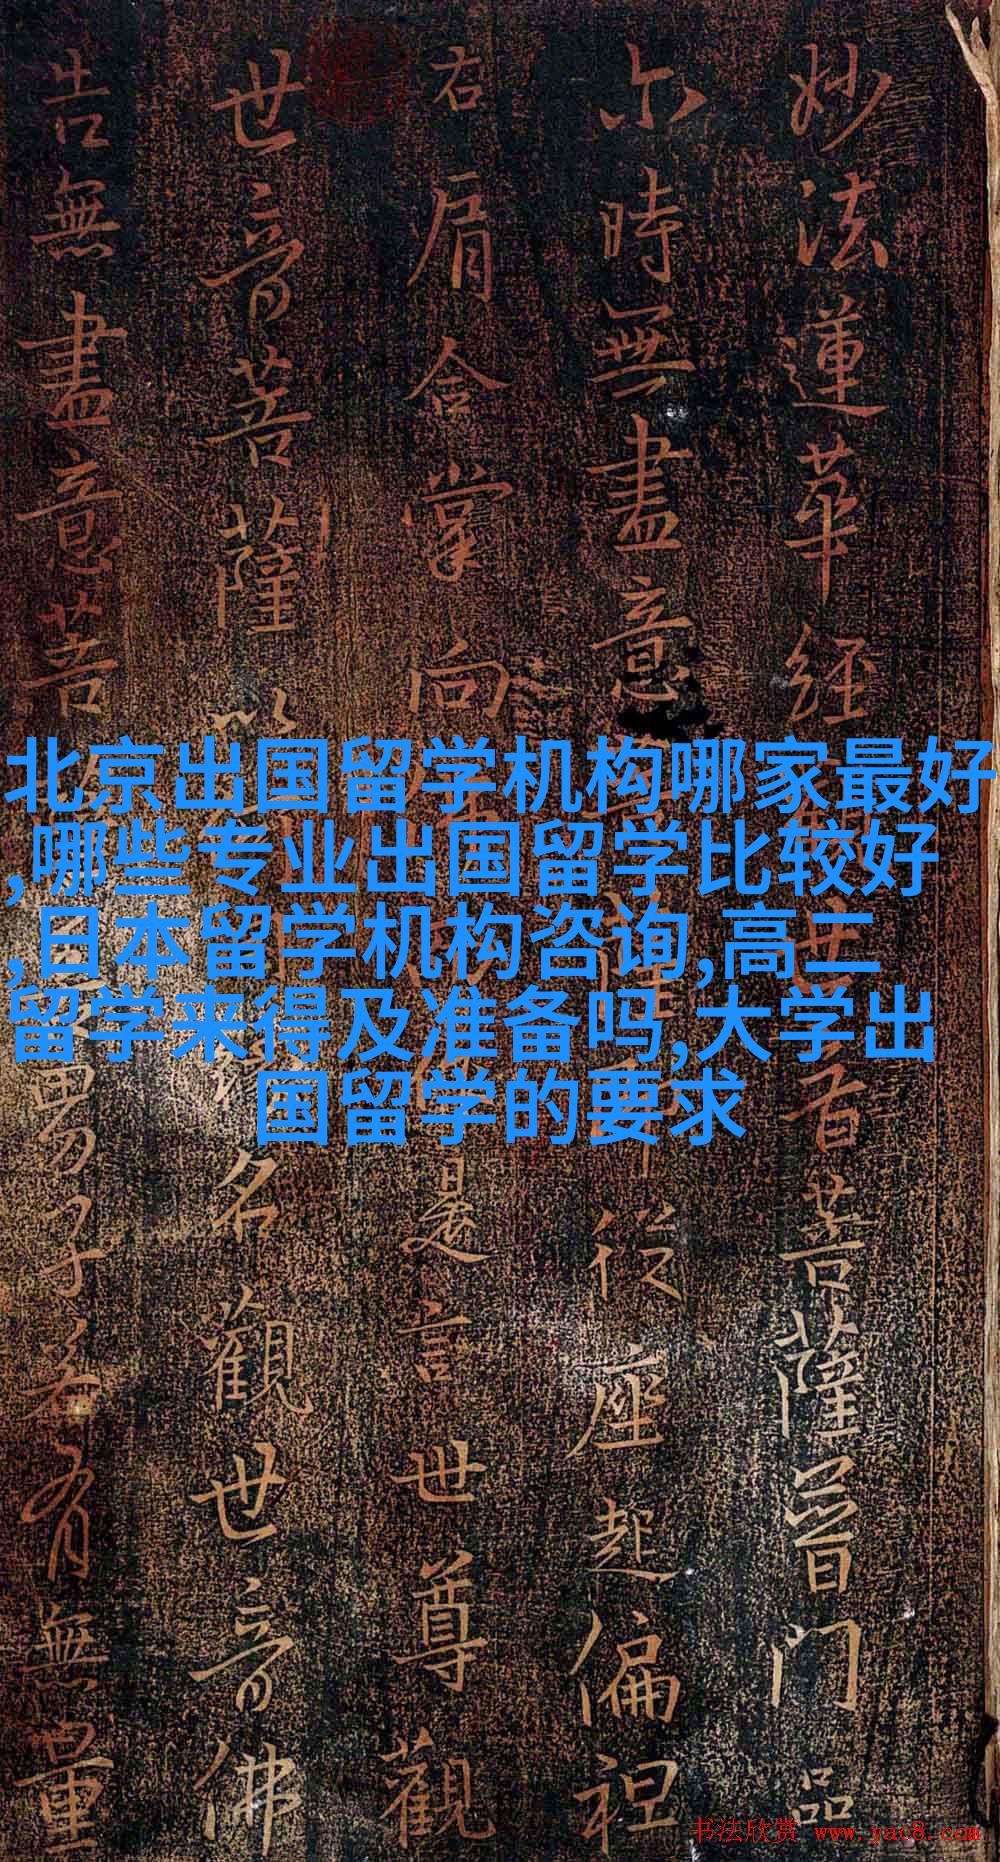 妙法蓮華經世音菩薩普門品
尒時無盡意從座起偏袒
右肩合掌向是言世尊觀
世音菩薩名觀世音佛
告無盡意菩男子若有無量
北京出国留学机构哪家最好
,哪些专业出国留学比较好
,日本留学机构咨询,高二
留学来得及准备吗,大学出
国留学的要求
书法欣赏 www.yac8.com